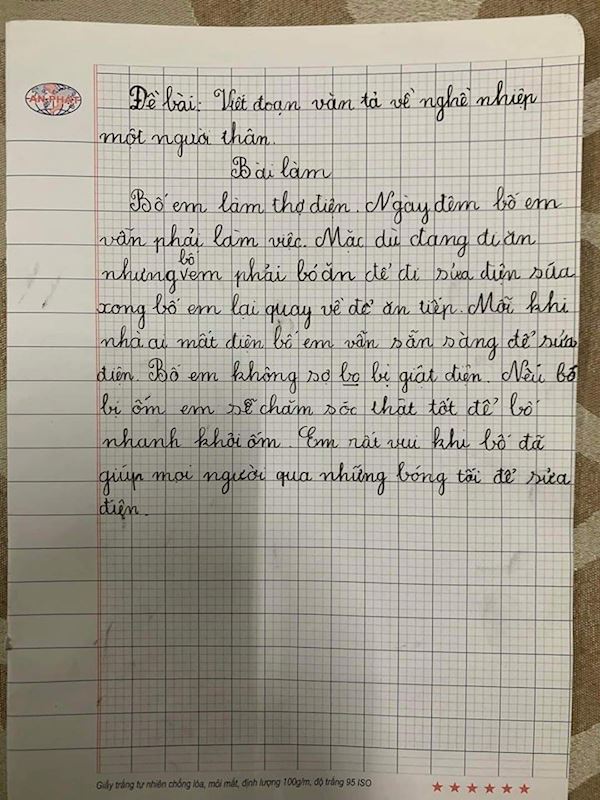 AN PHÁT
Đề bài: Viết đoạn văn tả về nghề nhiệp
một người thân.
Bài làm
Bố em làm thợ điện. Ngày đêm bố em
vẫn phải làm việc. Mặc dù đang đi ăn
nhưng bố em phải bỏ ăn để đi sửa điện sửa
xong bố em lại quay về để ăn tiếp. Mỗi khi
nhà ai mất điện bố em vẫn sẵn sàng để sửa
điện. Bố em không sợ bọ bị giật điện. Nếu bố
bị ốm em sẽ chăm sóc thật tốt để bố
nhanh khỏi ốm. Em rất vui khi bố đã
giúp mọi người qua những bóng tối để sửa
điện.
Giấy trắng tự nhiên chống lóa, mỏi mắt, định lượng 100g/m, độ trắng 95 ISO